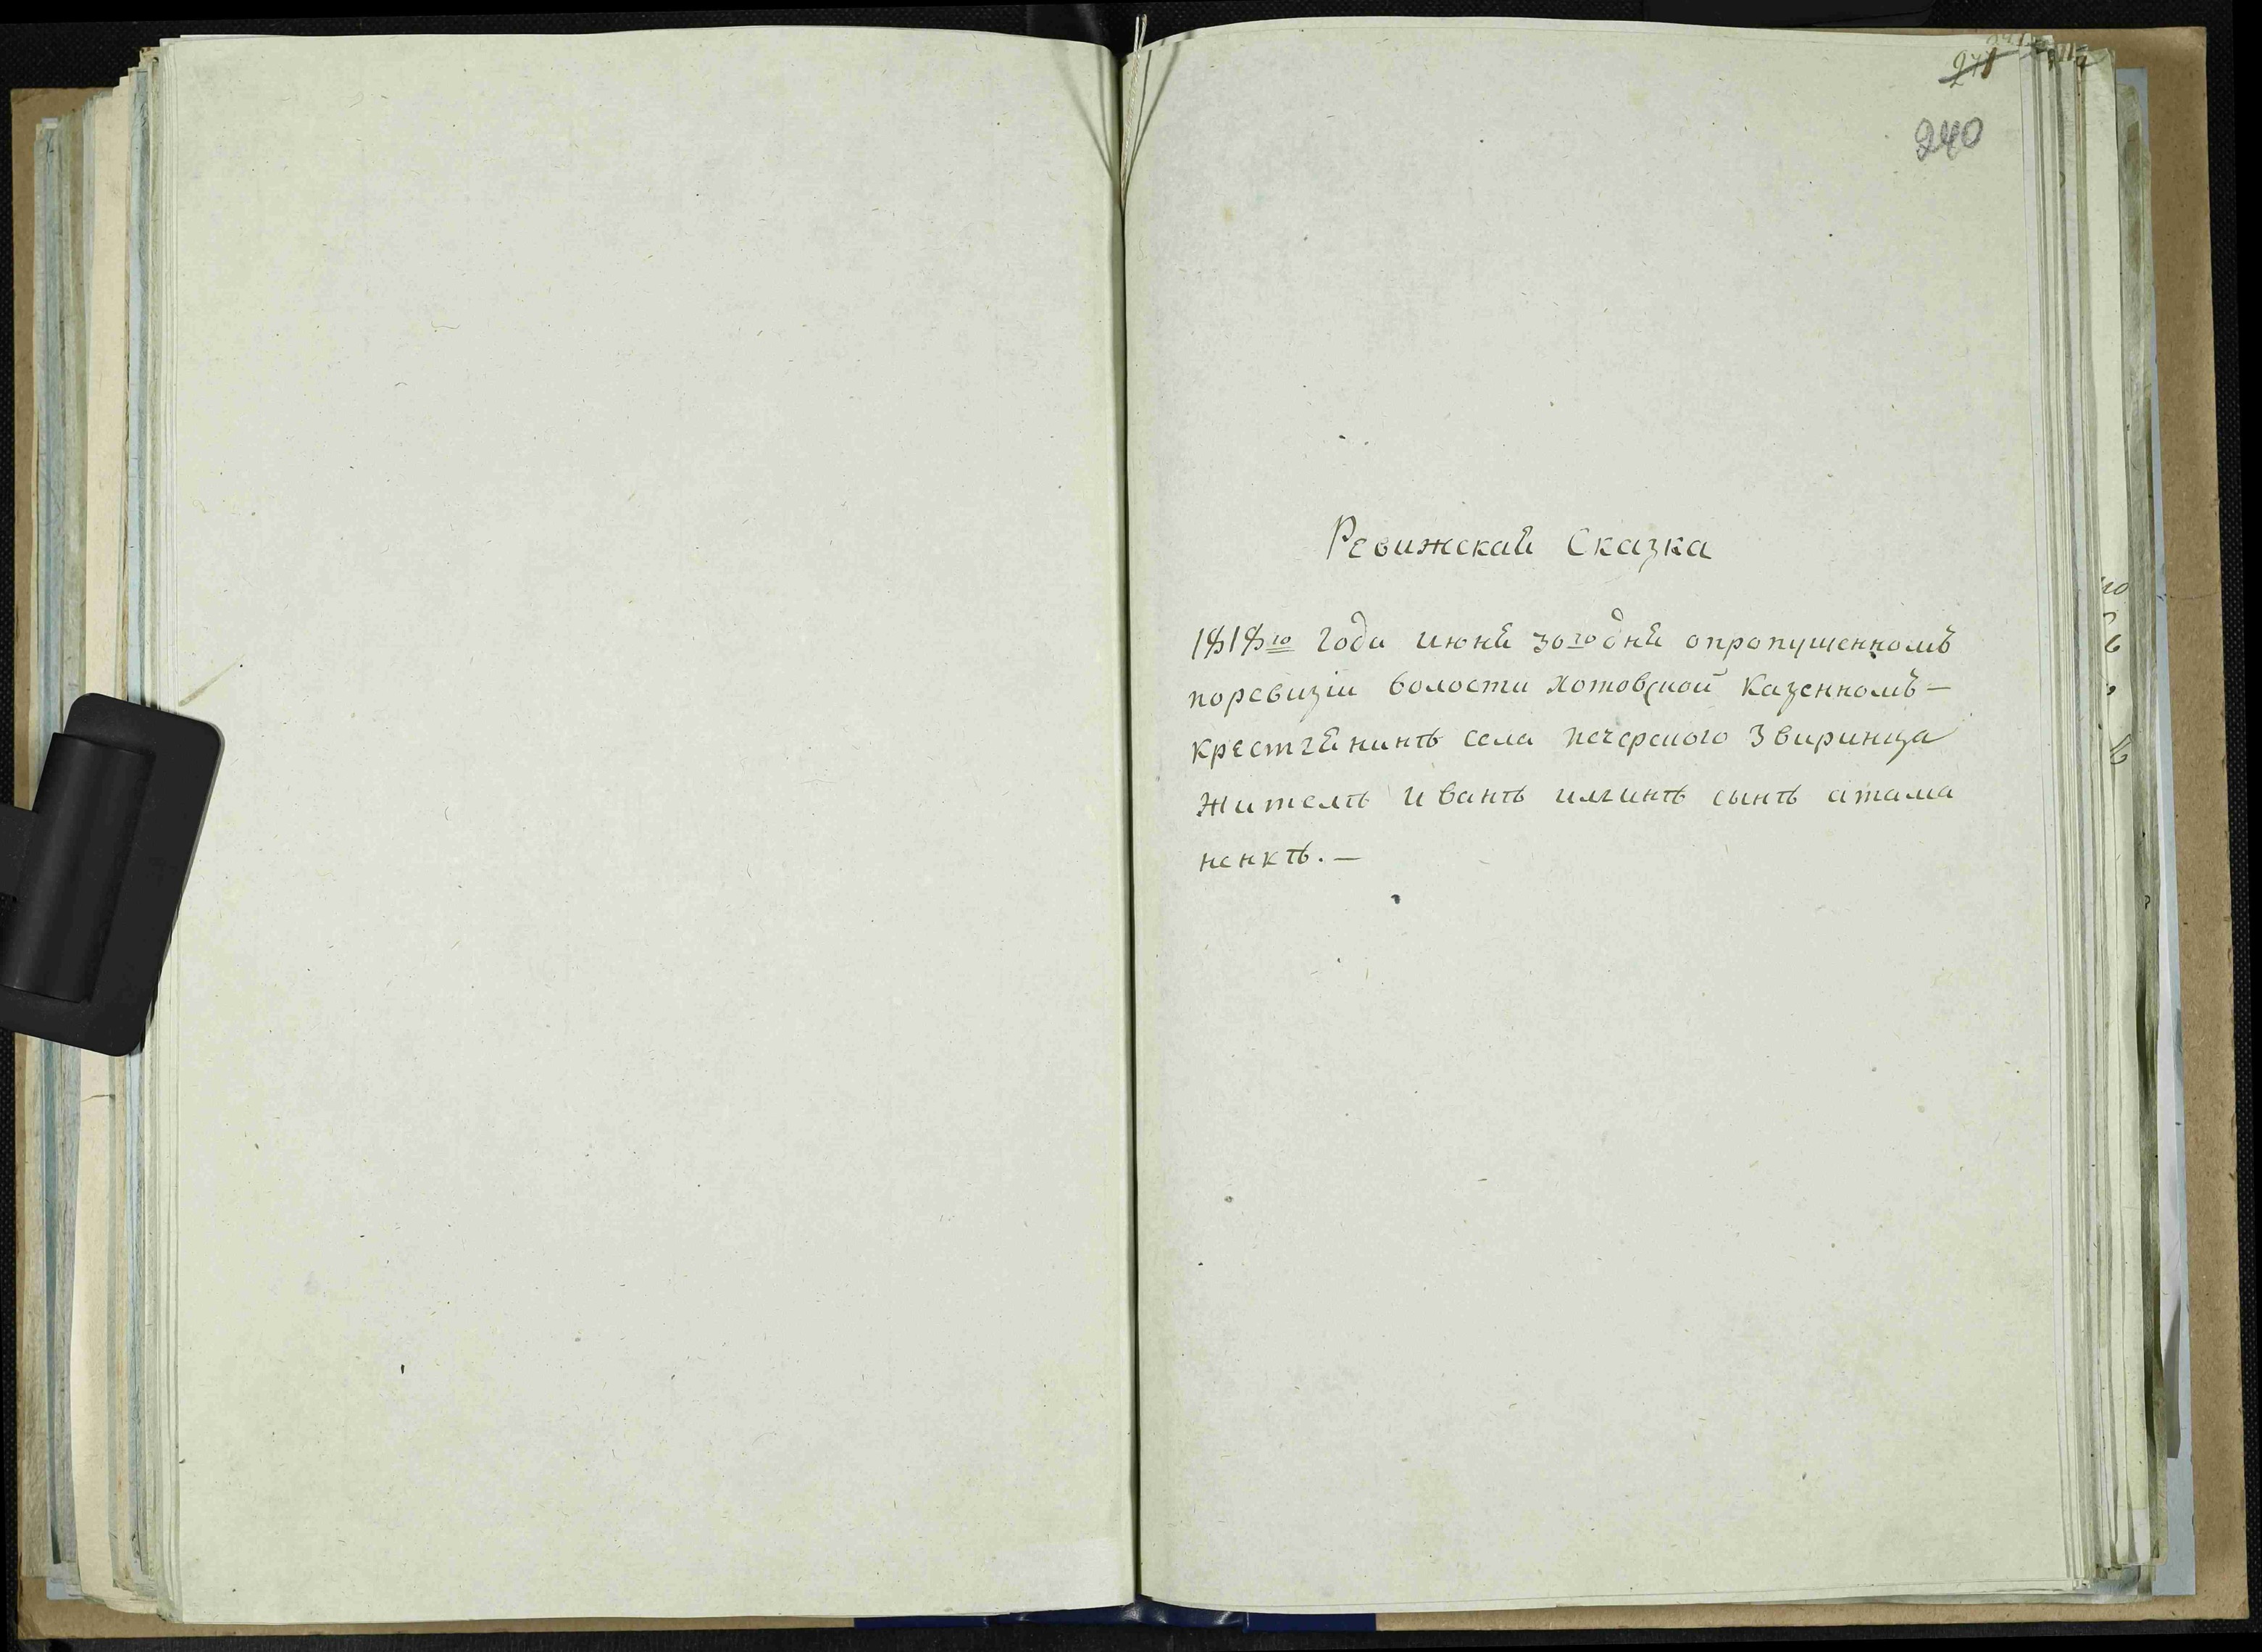 271
240
Ревижская Сказка
1818го года июня 30го дня опропущенномъ
поревизіи волости хотовской казенномъ —
крестгянинъ села печерского Звиринца
житель иванъ илгинъ сынъ атама
ненкъ. —